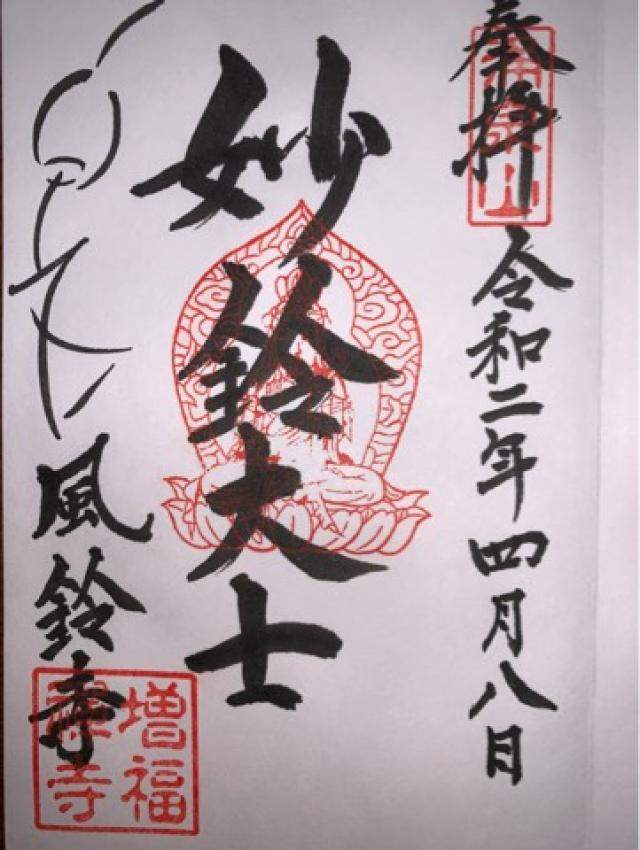 奉拝
令和二年四月八日
妙鈴大士
風鈴寺
増福
禅寺